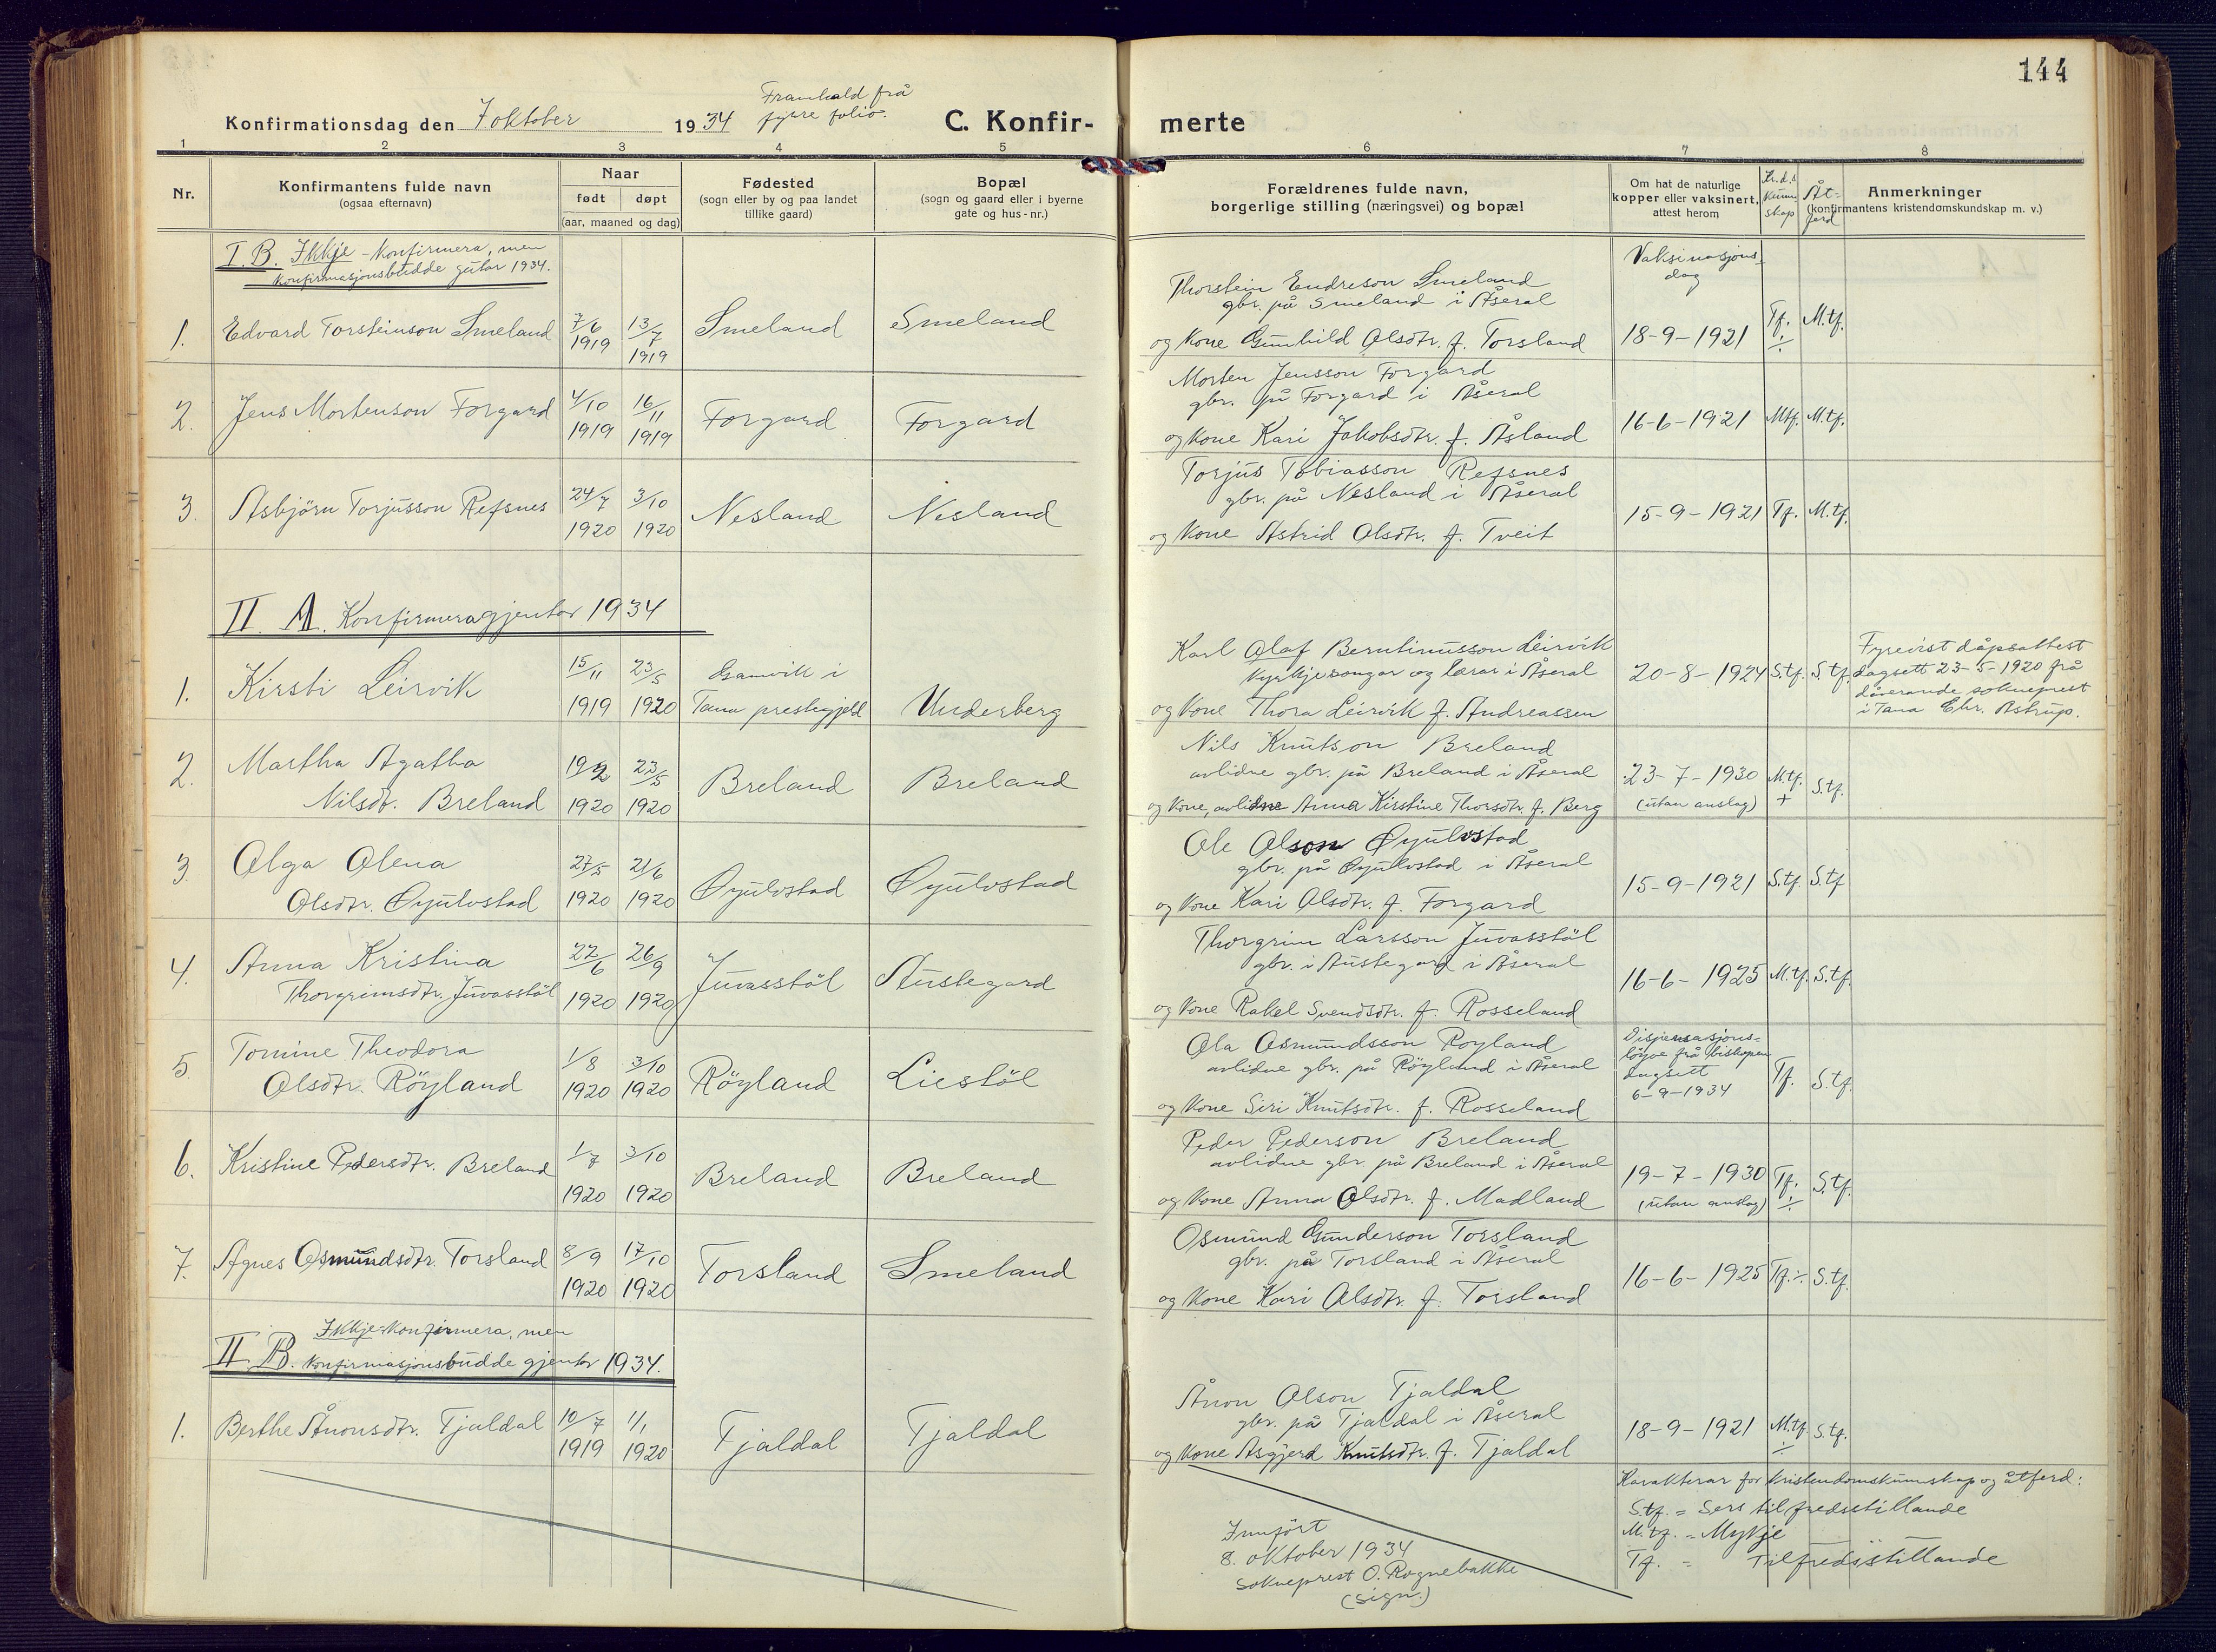 144
Konfirmationsdag den 7 oktober 1934 Framhald frå
fyrre folio.
C. Konfir-
merte
1 2 3 4 5 6 7 8
Nr.
Konfirmantens fulde navn
(ogsaa efternavn)
Naar
født døpt
(aar, maaned og dag)
Fødested
(sogn eller by og paa landet
tillike gaard)
Bopæl
(sogn og gaard eller i byerne
gate og hus-nr.)
Forældrenes fulde navn,
borgerlige stilling (næringsvei) og bopæl
Om hat de naturlige
kopper eller vaksinert,
attest herom
Kr.d.s
kunn-
skap
Åt-
ferd
Anmerkninger
(konfirmantens kristendomskundskap m. v.)
I. B. Ikkje-konfirmera, men
konfirmasjonsbudde gutar 1934.
Vaksinasjons-
dag
1. Edvard Torsteinson Smeland 7/6 1919 13/7 1919 Smeland Smeland
Thorstein Endreson Smeland
gbr. på Smeland i Åseral
og kone Gunhild Olsdtr. f. Torsland 18-9-1921 Tf. ÷ M.tf.
2. Jens Mortenson Forgard 4/10 1919 16/11 1919 Forgard Forgard
Morten Jensson Forgard
gbr. på Forgard i Åseral
og kone Kari Jakobsdtr. f. Åsland 16-6-1921 Mtf. M.tf.
3. Asbjörn Torjusson Refsnes 24/7 1920 3/10 1920 Nesland Nesland
Torjus Tobiasson Refsnes
gbr. på Nesland i Åseral
og kone Astrid Olsdtr. f. Tveit 15-9-1921 Tf. M.tf.
II. A. Konfirmera gjentor 1934
1. Kirsti Leirvik 15/11 1919 23/5 1920 Gamvik i
Tana prestegjeld Underberg
Karl Olaf Berntinusson Leirvik
kyrkjesongar og lærar i Åseral
og kone Thora Leirvik f. Andreassen 20-8-1924 S.tf. S.tf.
Fyrevist dåpsattest
dagsett 23-5-1920 frå
dåverande sokneprest
i Tana Chr. Astrup.
2. Martha Agatha
Nilsdt. Breland 19/2 1920 23/5 1920 Breland Breland
Nils Knutson Breland
avlidne gbr. på Breland i Åseral
og kone, avlidne Anna Kirstine Thorsdtr. f. Berg 23-7-1930
(utan anslag) M.tf. + S.tf.
3. Olga Olena
Olsdtr. Øyulvstad 27/5 1920 21/6 1920 Øyulvstad Øyulvstad
Ole Olson Øyulvstad
gbr. på Øyulvstad i Åseral
og kone Kari Olsdtr. f. Forgard 15-9-1921 S.tf. S.tf
4. Anna Kristina
Thorgrimsdtr. Juvasstöl 22/6 1920 26/9 1920 Juvasstöl Austegard
Thorgrim Larsson Juvasstöl
gbr. i Austegard i Åseral
og kone Rakel Svendsdtr. f. Rosseland 16-6-1925 M.tf. S.tf.
5. Tomine Theodora
Olsdtr. Röyland 1/8 1920 3/10 1920 Röyland Liestöl
Ola Osmundsson Röyland
avlidne gbr. på Röyland i Åseral
og kone Siri Knutsdtr. f. Rosseland
Dispensasjons-
løyve frå biskopen
dagsett
6-9-1934 Tf. S.tf.
6. Kristine Pedersdtr. Breland 1/7 1920 3/10 1920 Breland Breland
Peder Pederson Breland
avlidne gbr. på Breland i Åseral
og kone Anna Olsdtr. f. Madland 19-7-1930
(utan anslag) Tf. ÷ S.tf.
7. Agnes Osmundsdtr. Torsland 8/9 1920 17/10 1920 Torsland Smeland
Osmund Gunderson Torsland
gbr. på Torsland i Åseral
og kone Kari Olsdtr. f. Torsland 16-6-1925 Tf. ÷ S.tf.
II B. Ikkje-konfirmera, men
konfirmasjonsbudde gjentor 1934.
1. Berthe Ånonsdtr. Tjaldal 10/7 1919 1/1 1920 Tjaldal Tjaldal
Ånon Olson Tjaldal
gbr. på Tjaldal i Åseral
og kone Asgjerd Knutsdtr. f. Tjaldal 18-9-1921 M.tf. ÷ S.tf.
Karakterar for kristendomskunnskap og åtferd:
S.tf. = Sers tilfredsstillande
M.tf. = Mykje
Tf. = Tilfredsstillande
Innfört
8. oktober 1934
sokneprest O. Rognebakke
(sign.)